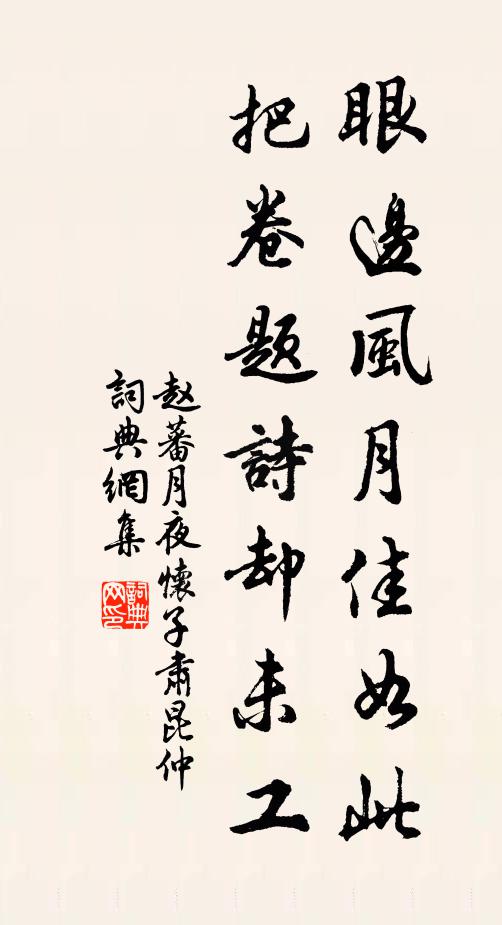 眼邊風月佳如此
把卷題詩却未工
赵蕃月夜懷子肅昆仲
詞典網集
詞典网印